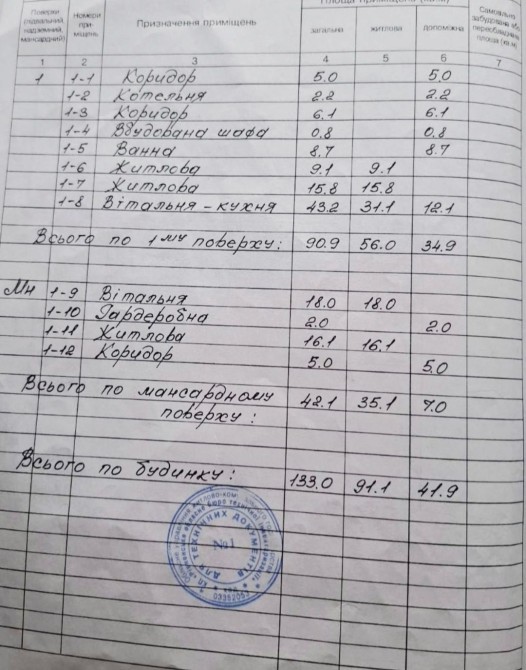 Поверхи (підвальний, надземний, мансардний) Номери при- міщень Призначення приміщень загальна житлова допоміжна Самовільно
1 2 3 4 5 6 7
1 1-1 Коридор 5.0 5.0
1-2 Котельня 2.2 2.2
1-3 Коридор 6.1 6.1
1-4 Вбудована шафа 0.8 0.8
1-5 Ванна 8.7 8.7
1-6 Житлова 9.1 9.1
1-7 Житлова 15.8 15.8
1-8 Вітальня - кухня 43.2 31.1 12.1
Всього по 1му поверху: 90.9 56.0 34.9
Мн 1-9 Вітальня 18.0 18.0
1-10 Гардеробна 2.0 2.0
1-11 Житлова 16.1 16.1
1-12 Коридор 5.0 5.0
Всього по мансардному 42.1 35.1 7.0
поверху:
Всього по будинку: 133.0 91.1 41.9
ДЛЯ ТЕХНІЧНИХ ДОКУМЕНТІВ
№1